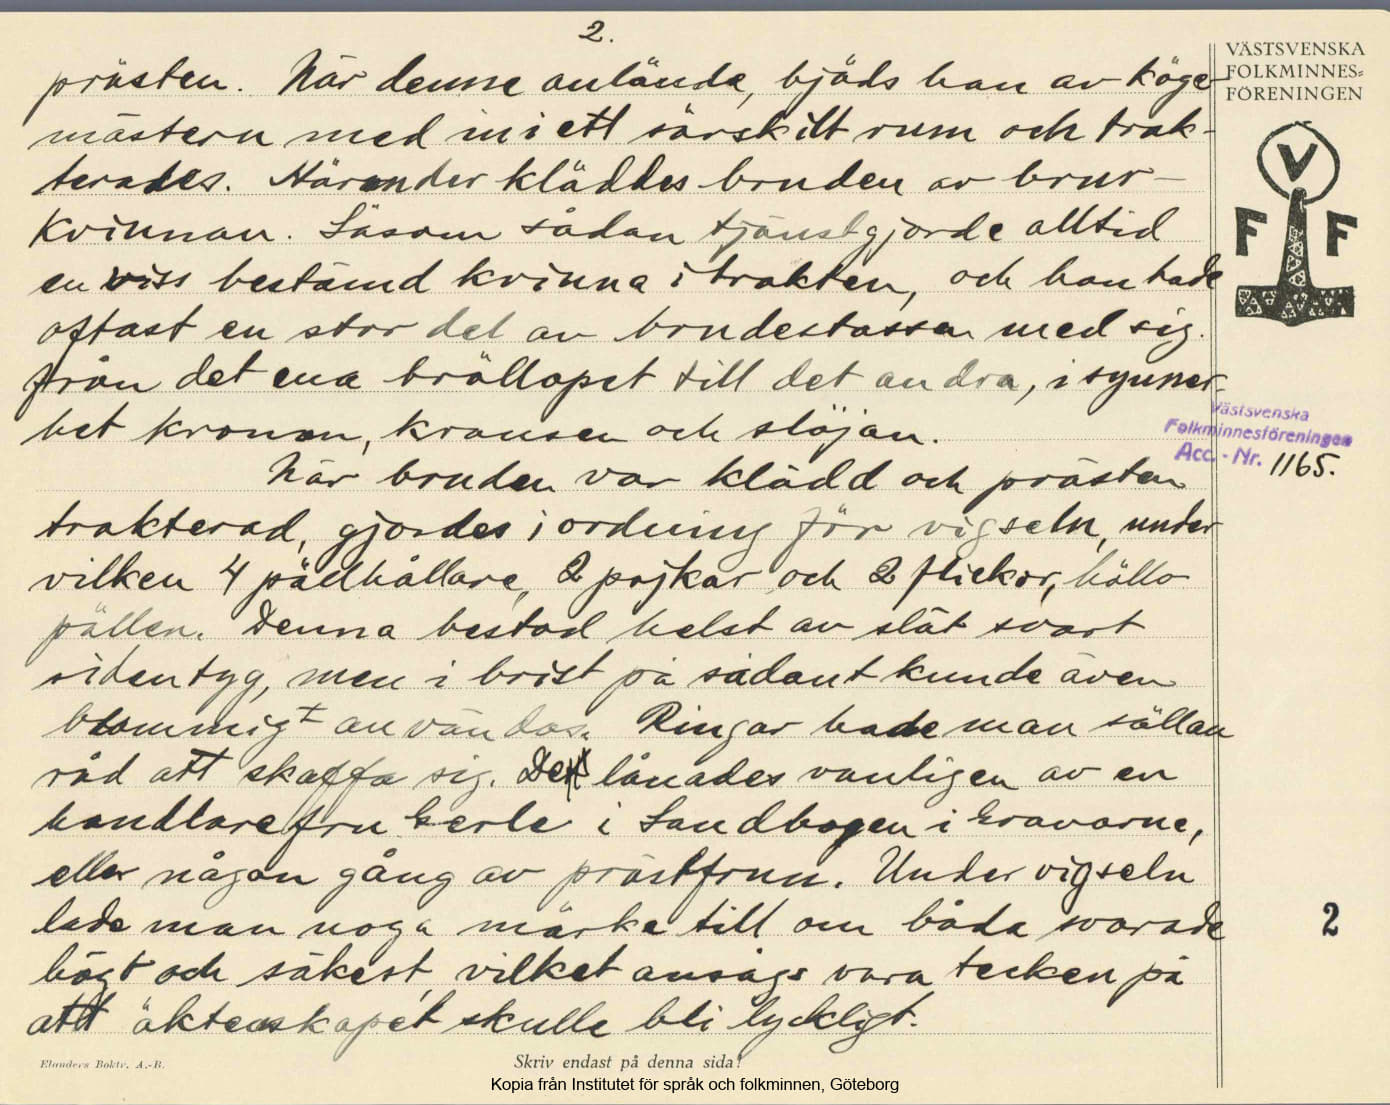 2.
prästen. När denne anlände, bjöds han av köge-
mästern med in i ett särskilt rum och trak-
terades. Härunder kläddes bruden av brur-
kvinnan. Såsom sådan tjänstgjorde alltid
en viss bestämd kvinna i trakten, och hon hade
oftast en stor del av brudestassen med sig
från det ena bröllopet till det andra, i synner-
het kronan, kransen och slöjan.
När bruden var klädd och prästen
trakterad, gjordes i ordning för vigseln, under
vilken 4 pällhållare, 2 pojkar och 2 flickor, höllo
pällen. Denna bestod helst av slät svart
sidentyg, men i brist på sådant kunde även
blommigt användas. Ringar hade man sällan
råd att skaffa sig. De lånades vanligen av en
handlarefru Gerle i Sandbogen i Gravarne,
eller någon gång av prästfrun. Under vigseln
lade man noga märke till om båda svarade
högt och säkert, vilket ansågs vara tecken på
att äktenskapet skulle bli lyckligt.
VÄSTSVENSKA
FOLKMINNES=
FÖRENINGEN
V
F F
Västsvenska
Folkminnesföreningen
Acc. - Nr. 1165.
2
Elanders Boktr. A.-B.
Skriv endast på denna sida!
Kopia från Institutet för språk och folkminnen, Göteborg